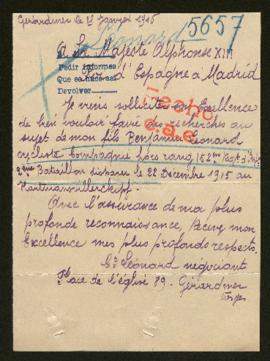 Gérardmer le 12 Janvier 1916
5657
Léonard
A Sa Majesté Alphonse XIII
Pedir informes
Roi d'Espagne a Madrid
Que se haga así
Devolver
Je viens solliciter son Excellence
de bien vouloir faire des recherches au
sujet de mon fils Benjamin Léonard
cycliste Compagnie hors rang 152me Regt d'Inf
Bataillon disparu le 22 Décembre 1915 au
Hartmannwillerskopf.
Avec l'assurance de ma plus
profonde reconnaissance, Recevez mon
Excellence mes plus profonds respects.
Léonard négociant
Place de l'église 89. Gérardmer
Vosges